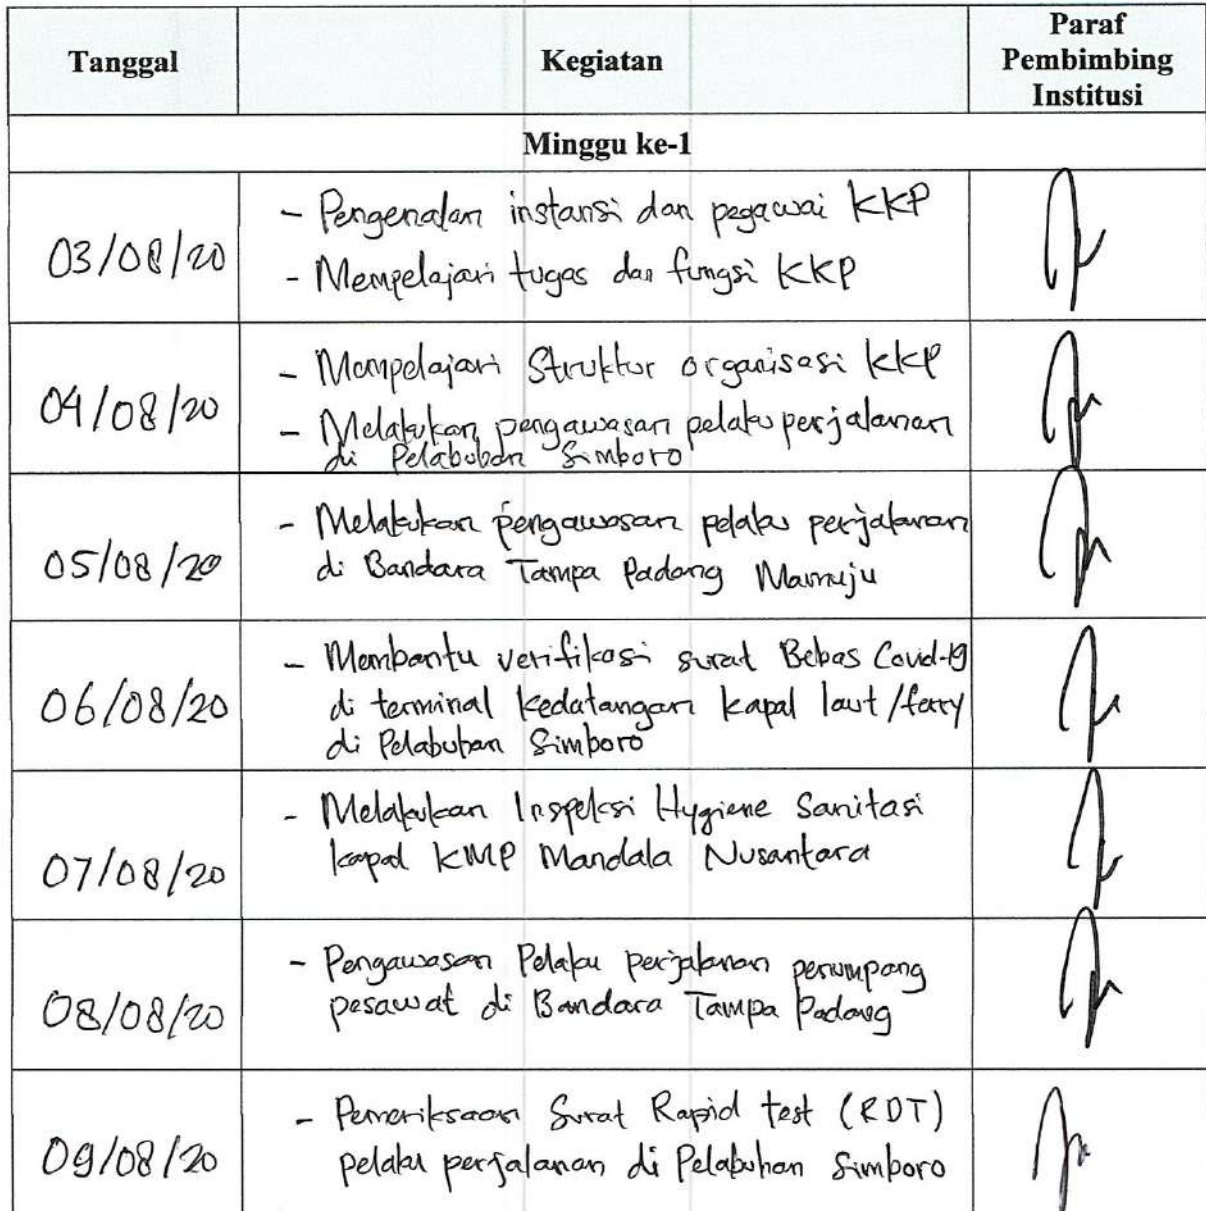 Tanggal
Kegiatan
Paraf
Pembimbing
Institusi
Minggu ke-1
03/08/20
- Pengenalan instansi dan pegawai KKP
- Mempelajari tugas dan fungsi KKP
04/08/20
- Mempelajari Struktur organisasi KKP
- Melakukan pengawasan pelaku perjalanan
di Pelabuhan Simboro
05/08/20
- Melakukan pengawasan pelaku perjalanan
di Bandara Tampa Padang Mamuju
06/08/20
- Membantu verifikasi surat Bebas Covid-19
di terminal kedatangan kapal laut/ferry
di Pelabuhan Simboro
07/08/20
- Melakukan Inspeksi Hygiene Sanitasi
kapal KMP Mandala Nusantara
08/08/20
- Pengawasan Pelaku perjalanan penumpang
pesawat di Bandara Tampa Padang
09/08/20
- Pemeriksaan Surat Rapid test (RDT)
pelaku perjalanan di Pelabuhan Simboro